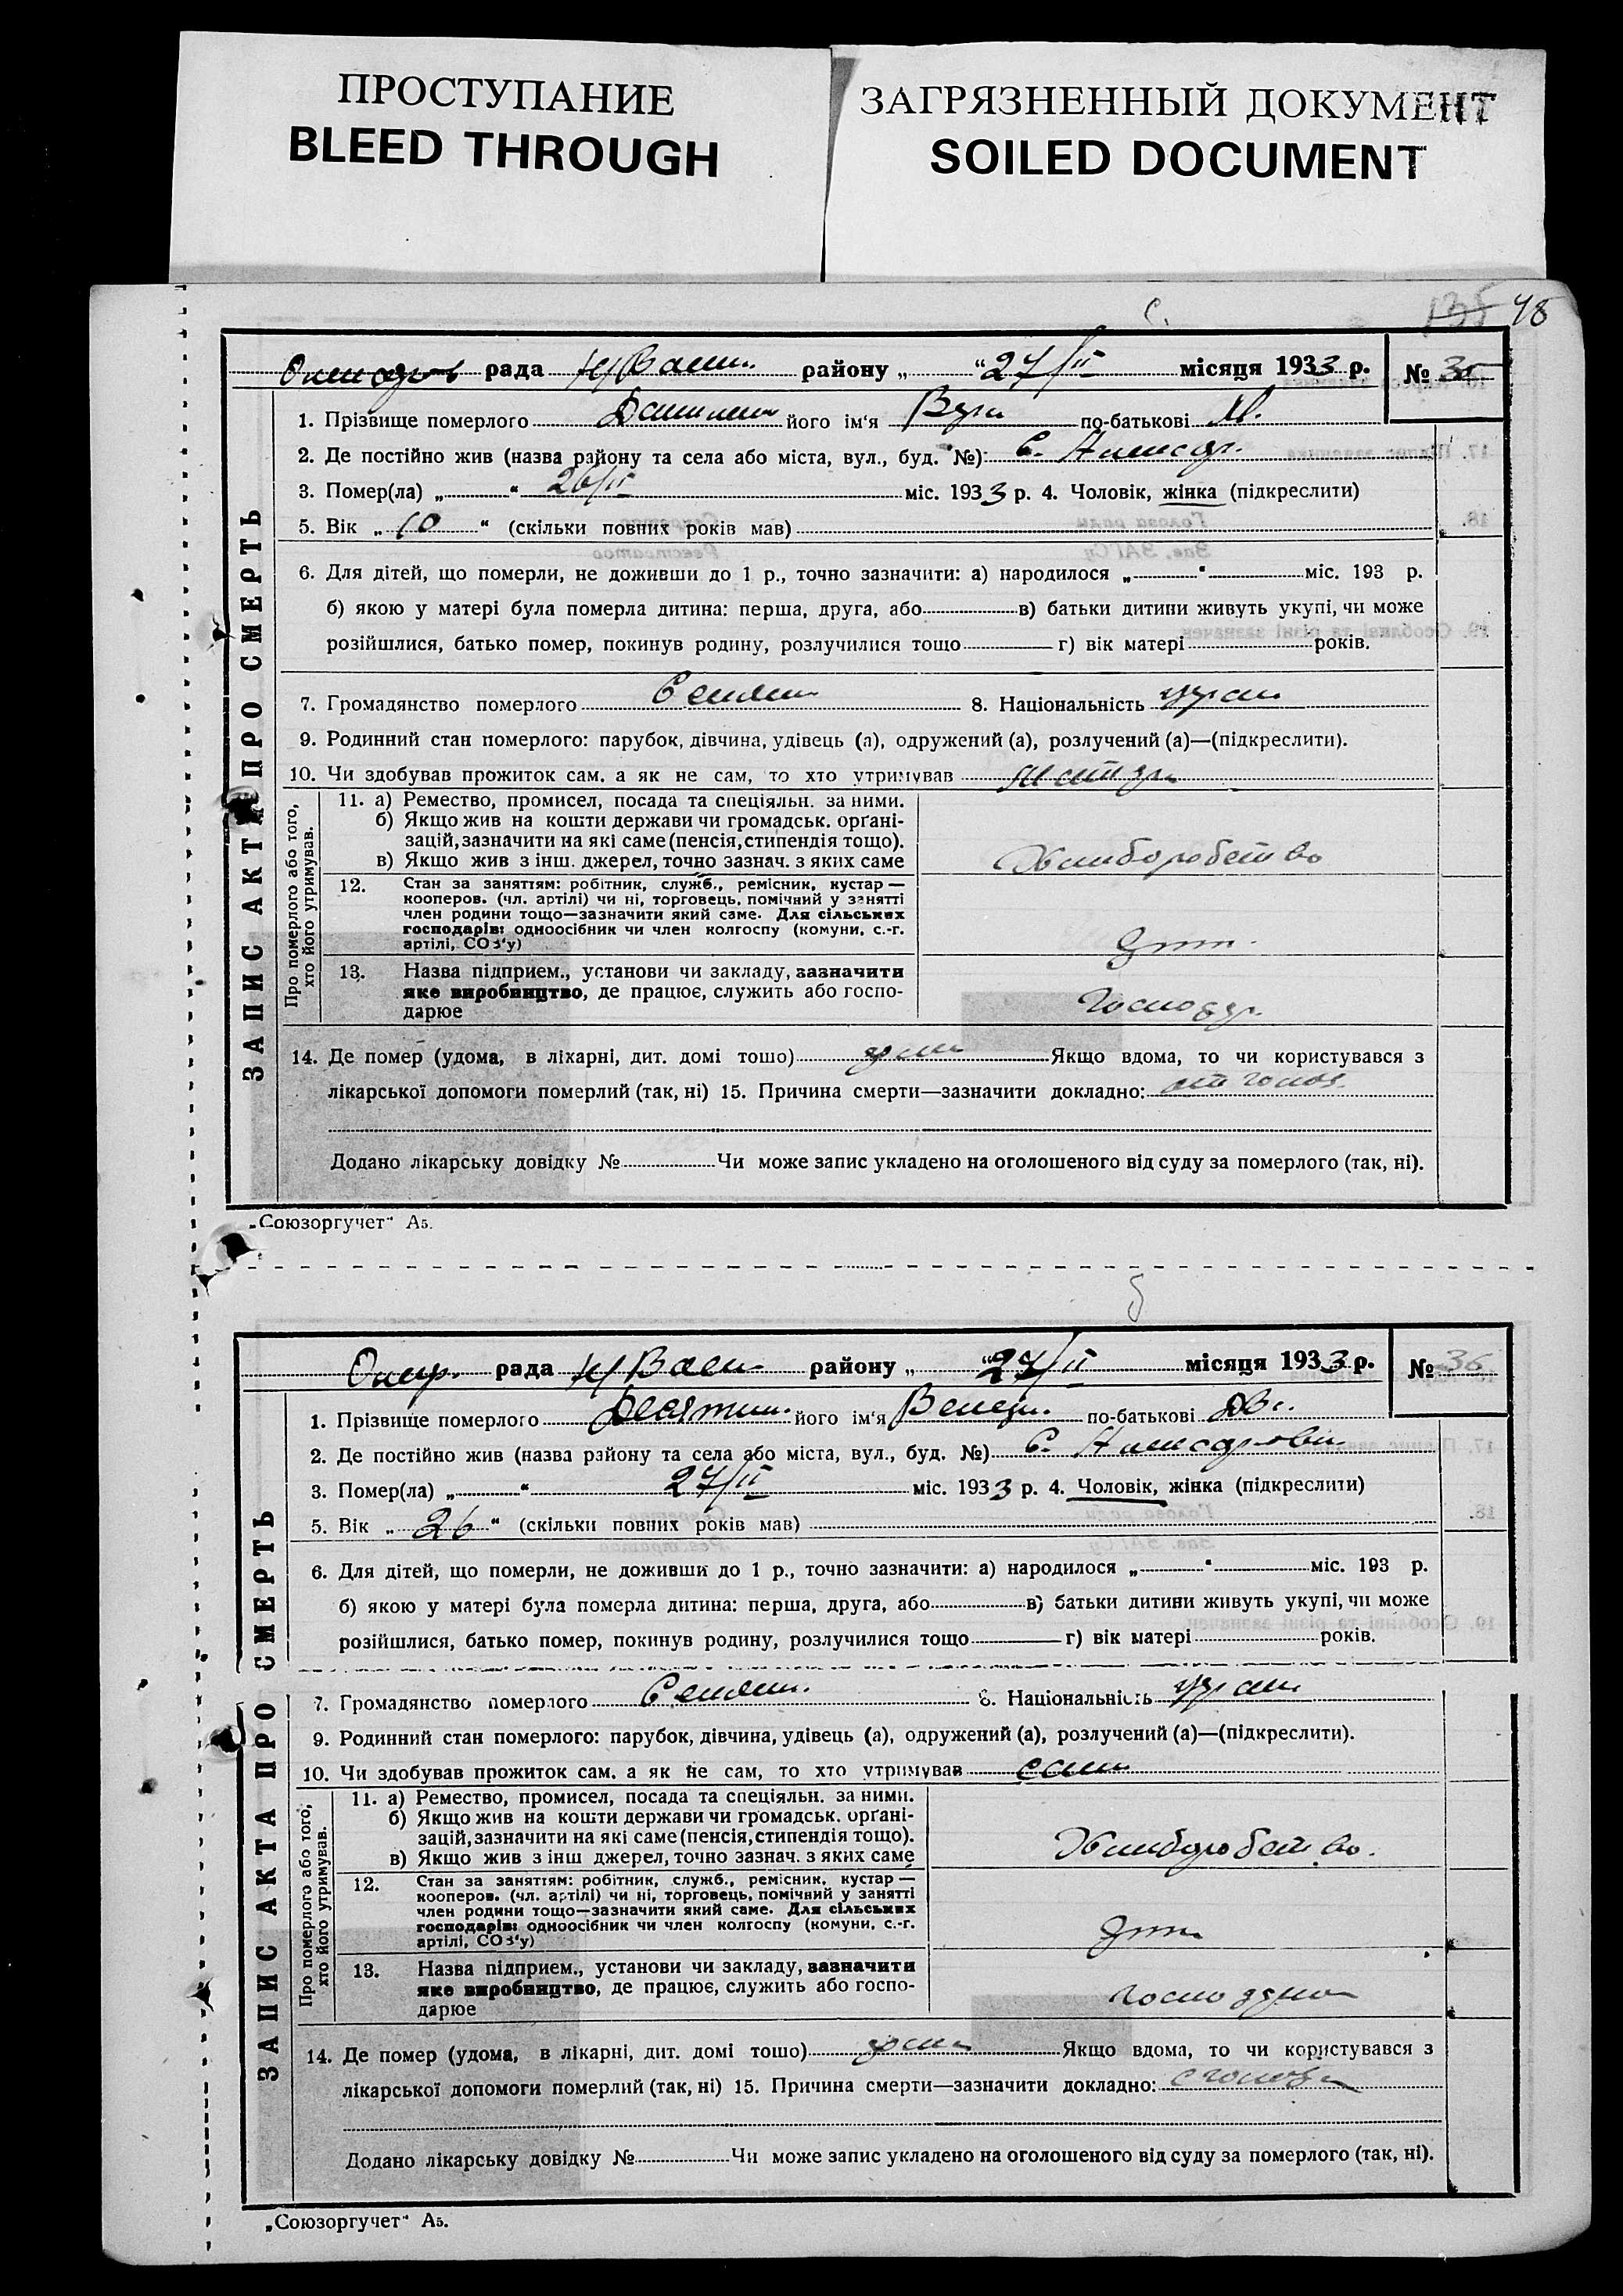 ПРОСТУПАНИЕ
BLEED THROUGH
ЗАГРЯЗНЕННЫЙ ДОКУМЕНТ
SOILED DOCUMENT
135 48
с.
рада Н/Васил. району „ “27/II місяця 1933 р. № 35
1. Прізвище померлого його ім'я Вера по-батькові М.
2. Де постійно жив (назва району та села або міста, вул., буд. №) С. Александр.
3. Помер(ла) „ “ 26/II міс. 1933 р. 4. Чоловік, жінка (підкреслити)
5. Вік „ 10 “ (скільки повних років мав)
6. Для дітей, що померли, не доживши до 1 р., точно зазначити: а) народилося „ “ міс. 193 р.
б) якою у матері була померла дитина: перша, друга, або в) батьки дитини живуть укупі, чи може
розійшлися, батько помер, покинув родину, розлучилися тощо г) вік матері років.
7. Громадянство померлого Селян 8. Національність украи
9. Родинний стан померлого: парубок, дівчина, удівець (а), одружений (а), розлучений (а)—(підкреслити).
10. Чи здобував прожиток сам, а як не сам, то хто утримував
ЗАПИС АКТА ПРО СМЕРТЬ
Про померлого або того, хто його утримував.
11. а) Ремество, промисел, посада та спеціяльн. за ними.
б) Якщо жив на кошти держави чи громадськ. орґані-
зацій, зазначити на які саме (пенсія, стипендія тощо).
в) Якщо жив з інш. джерел, точно зазнач. з яких саме
Хлиборобство
12. Стан за заняттям: робітник, служб., ремісник, кустар —
кооперов. (чл. артілі) чи ні, торговець, помічний у занятті
член родини тощо—зазначити який саме. Для сільських
господарів: одноосібник чи член колгоспу (комуни, с.-г.
артілі, СОЗ'у)
13. Назва підприєм., установи чи закладу, зазначити
яке виробництво, де працює, служить або госпо-
дарюе
Господар.
14. Де помер (удома, в лікарні, дит. домі тощо) Якщо вдома, то чи користувався з
лікарської допомоги померлий (так, ні) 15. Причина смерти—зазначити докладно:
Додано лікарську довідку № Чи може запис укладено на оголошеного від суду за померлого (так, ні).
„Союзоргучет“ А5.
рада Н/Васил району „ “27/II місяця 1933 р. № 36
1. Прізвище померлого його ім'я по-батькові
2. Де постійно жив (назва району та села або міста, вул., буд. №) С. Александрови
3. Помер(ла) „ “ 27/II міс. 1933 р. 4. Чоловік, жінка (підкреслити)
5. Вік „ 26 “ (скільки повних років мав)
6. Для дітей, що померли, не доживши до 1 р., точно зазначити: а) народилося „ “ міс. 193 р.
б) якою у матері була померла дитина: перша, друга, або в) батьки дитини живуть укупі, чи може
розійшлися, батько помер, покинув родину, розлучилися тощо г) вік матері років.
7. Громадянство померлого Селян. 8. Національність украи
9. Родинний стан померлого: парубок, дівчина, удівець (а), одружений (а), розлучений (а)—(підкреслити).
10. Чи здобував прожиток сам, а як не сам, то хто утримував сам
ЗАПИС АКТА ПРО СМЕРТЬ
Про померлого або того, хто його утримував.
11. а) Ремество, промисел, посада та спеціяльн. за ними.
б) Якщо жив на кошти держави чи громадськ. орґані-
зацій, зазначити на які саме (пенсія, стипендія тощо).
в) Якщо жив з інш джерел, точно зазнач. з яких саме
Хлиборобство.
12. Стан за заняттям: робітник, служб., ремісник, кустар —
кооперов. (чл. артілі) чи ні, торговець, помічний у занятті
член родини тощо—зазначити який саме. Для сільських
господарів: одноосібник чи член колгоспу (комуни, с.-г.
артілі, СОЗ'у)
13. Назва підприєм., установи чи закладу, зазначити
яке виробництво, де працює, служить або госпо-
дарюе
14. Де помер (удома, в лікарні, дит. домі тощо) Якщо вдома, то чи користувався з
лікарської допомоги померлий (так, ні) 15. Причина смерти—зазначити докладно:
Додано лікарську довідку № Чи може запис укладено на оголошеного від суду за померлого (так, ні).
„Союзоргучет“ А5.